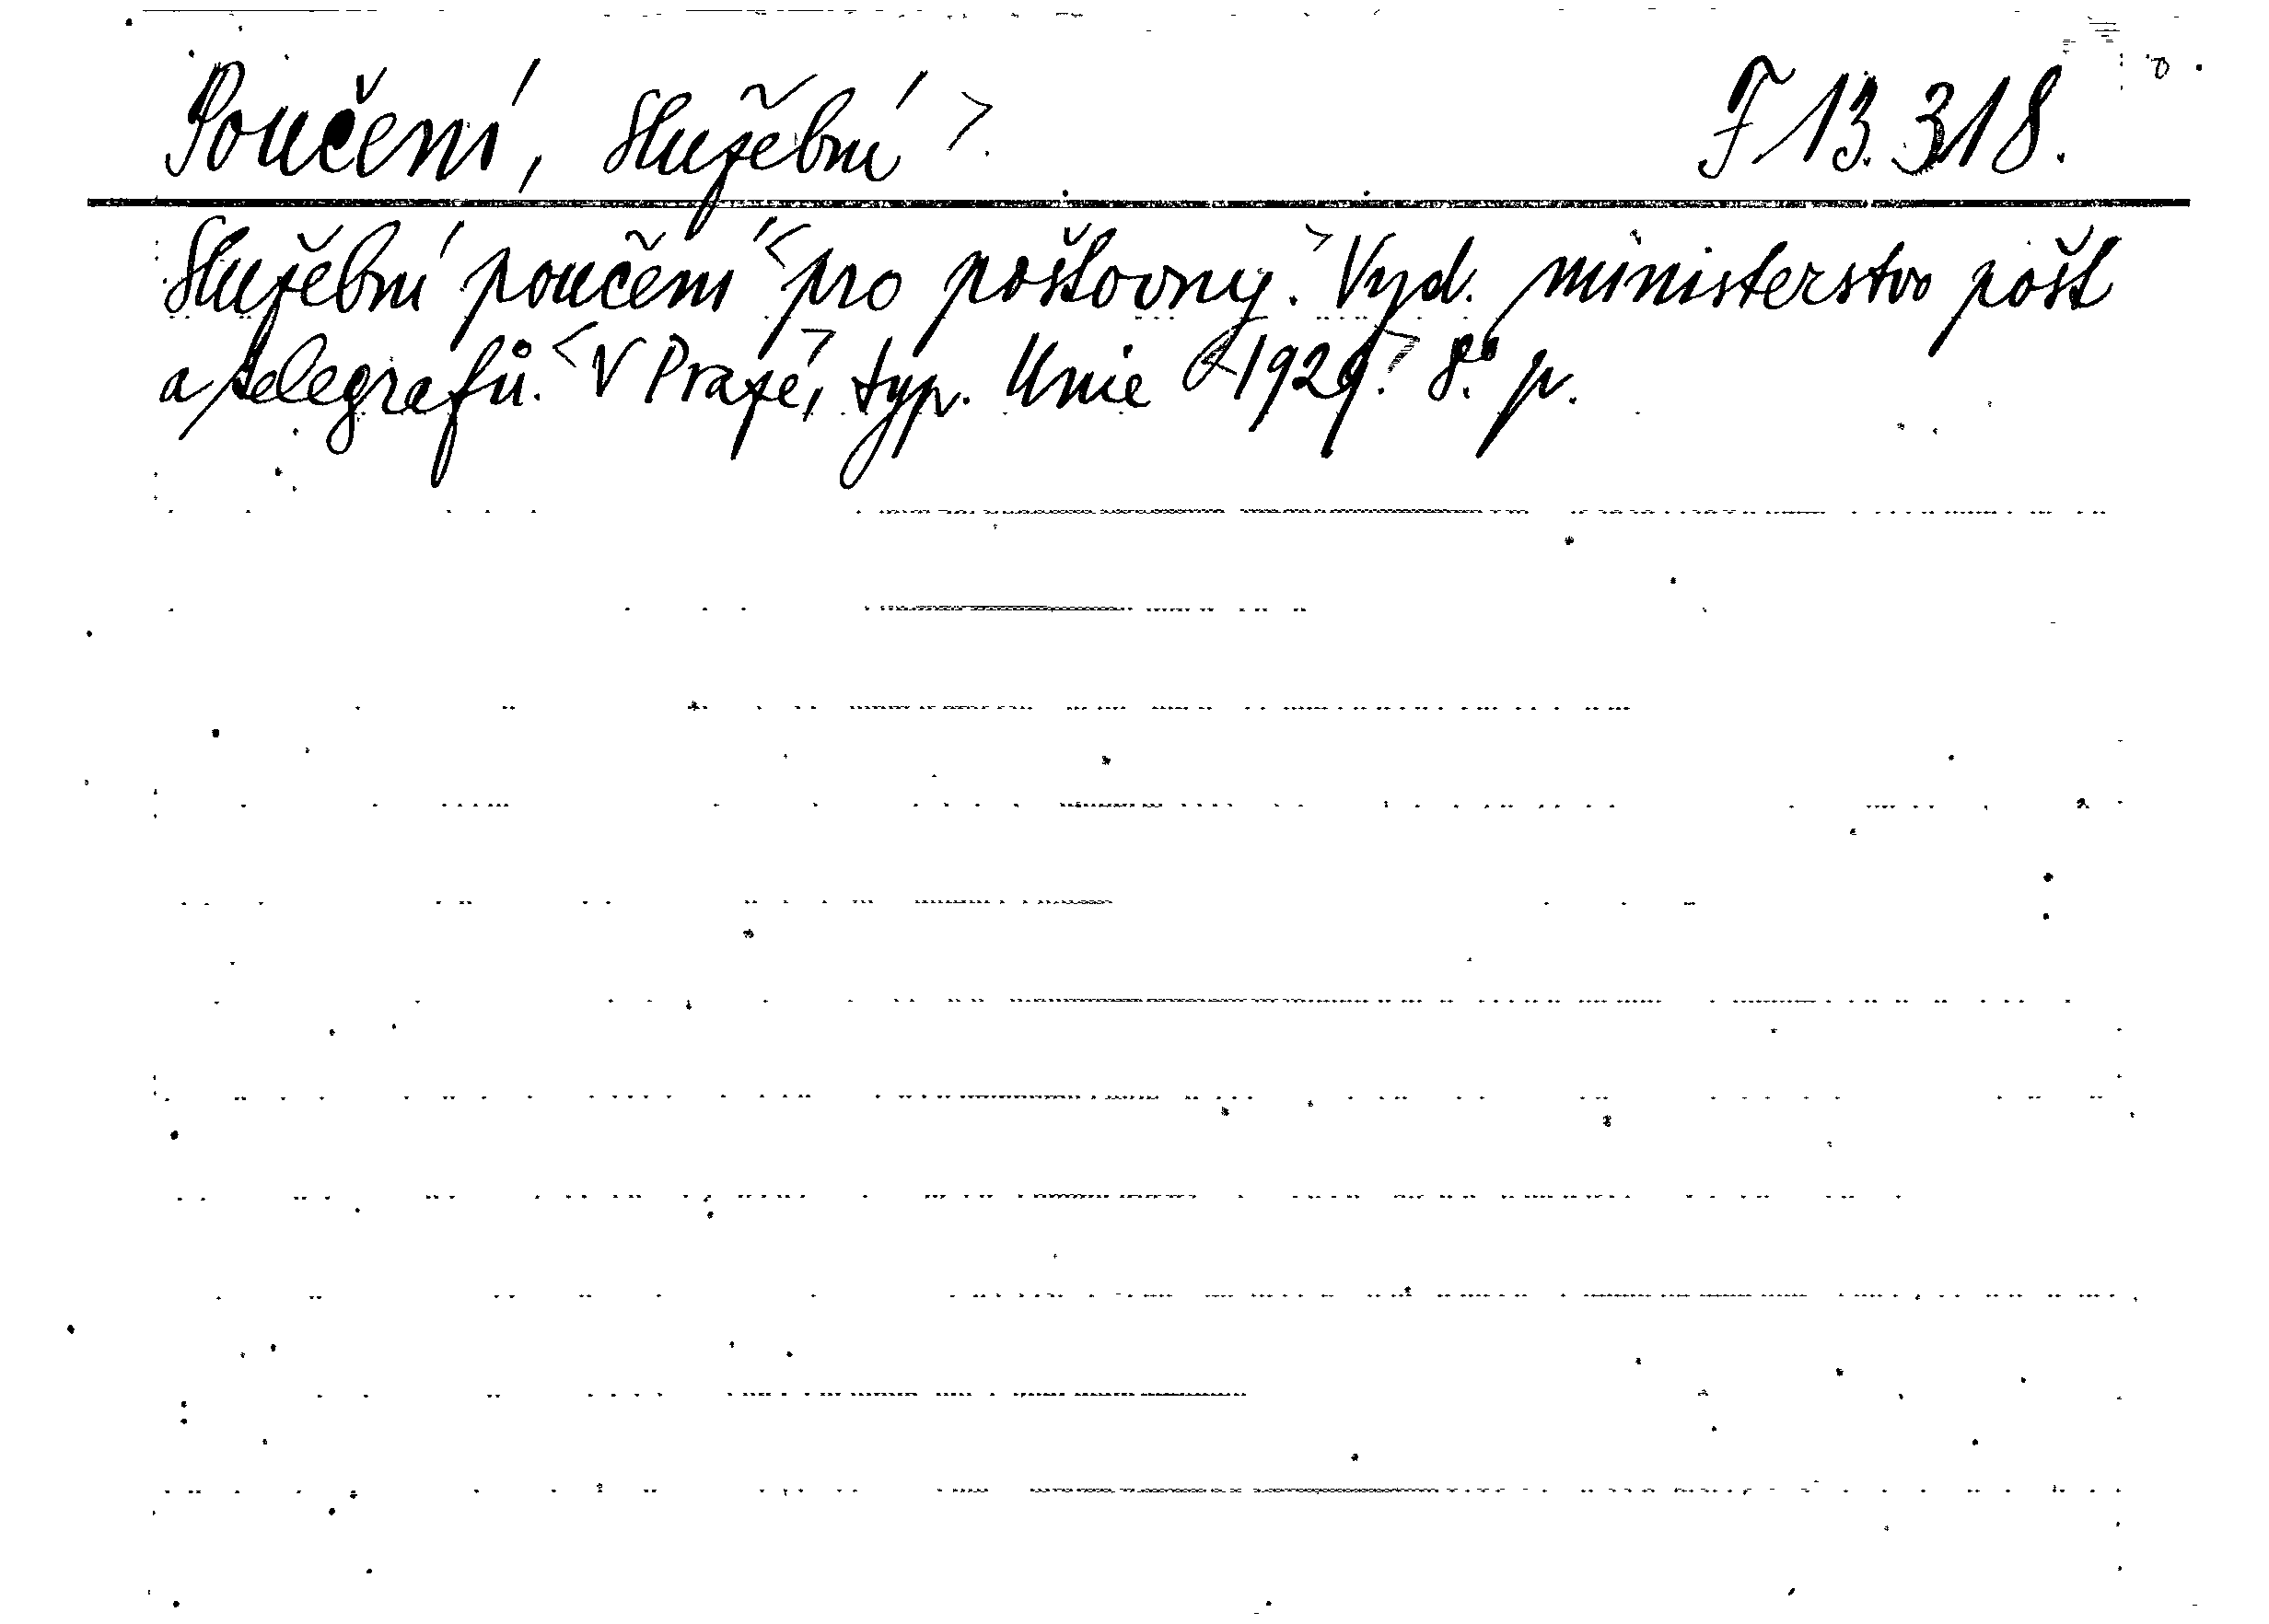 Poučení, služební >. F 13.318.
Služební poučení <pro poštovny.> Vyd. ministerstvo pošt
a telegrafů. <V Praze>, typ. Unie <1929.> 8.° p.